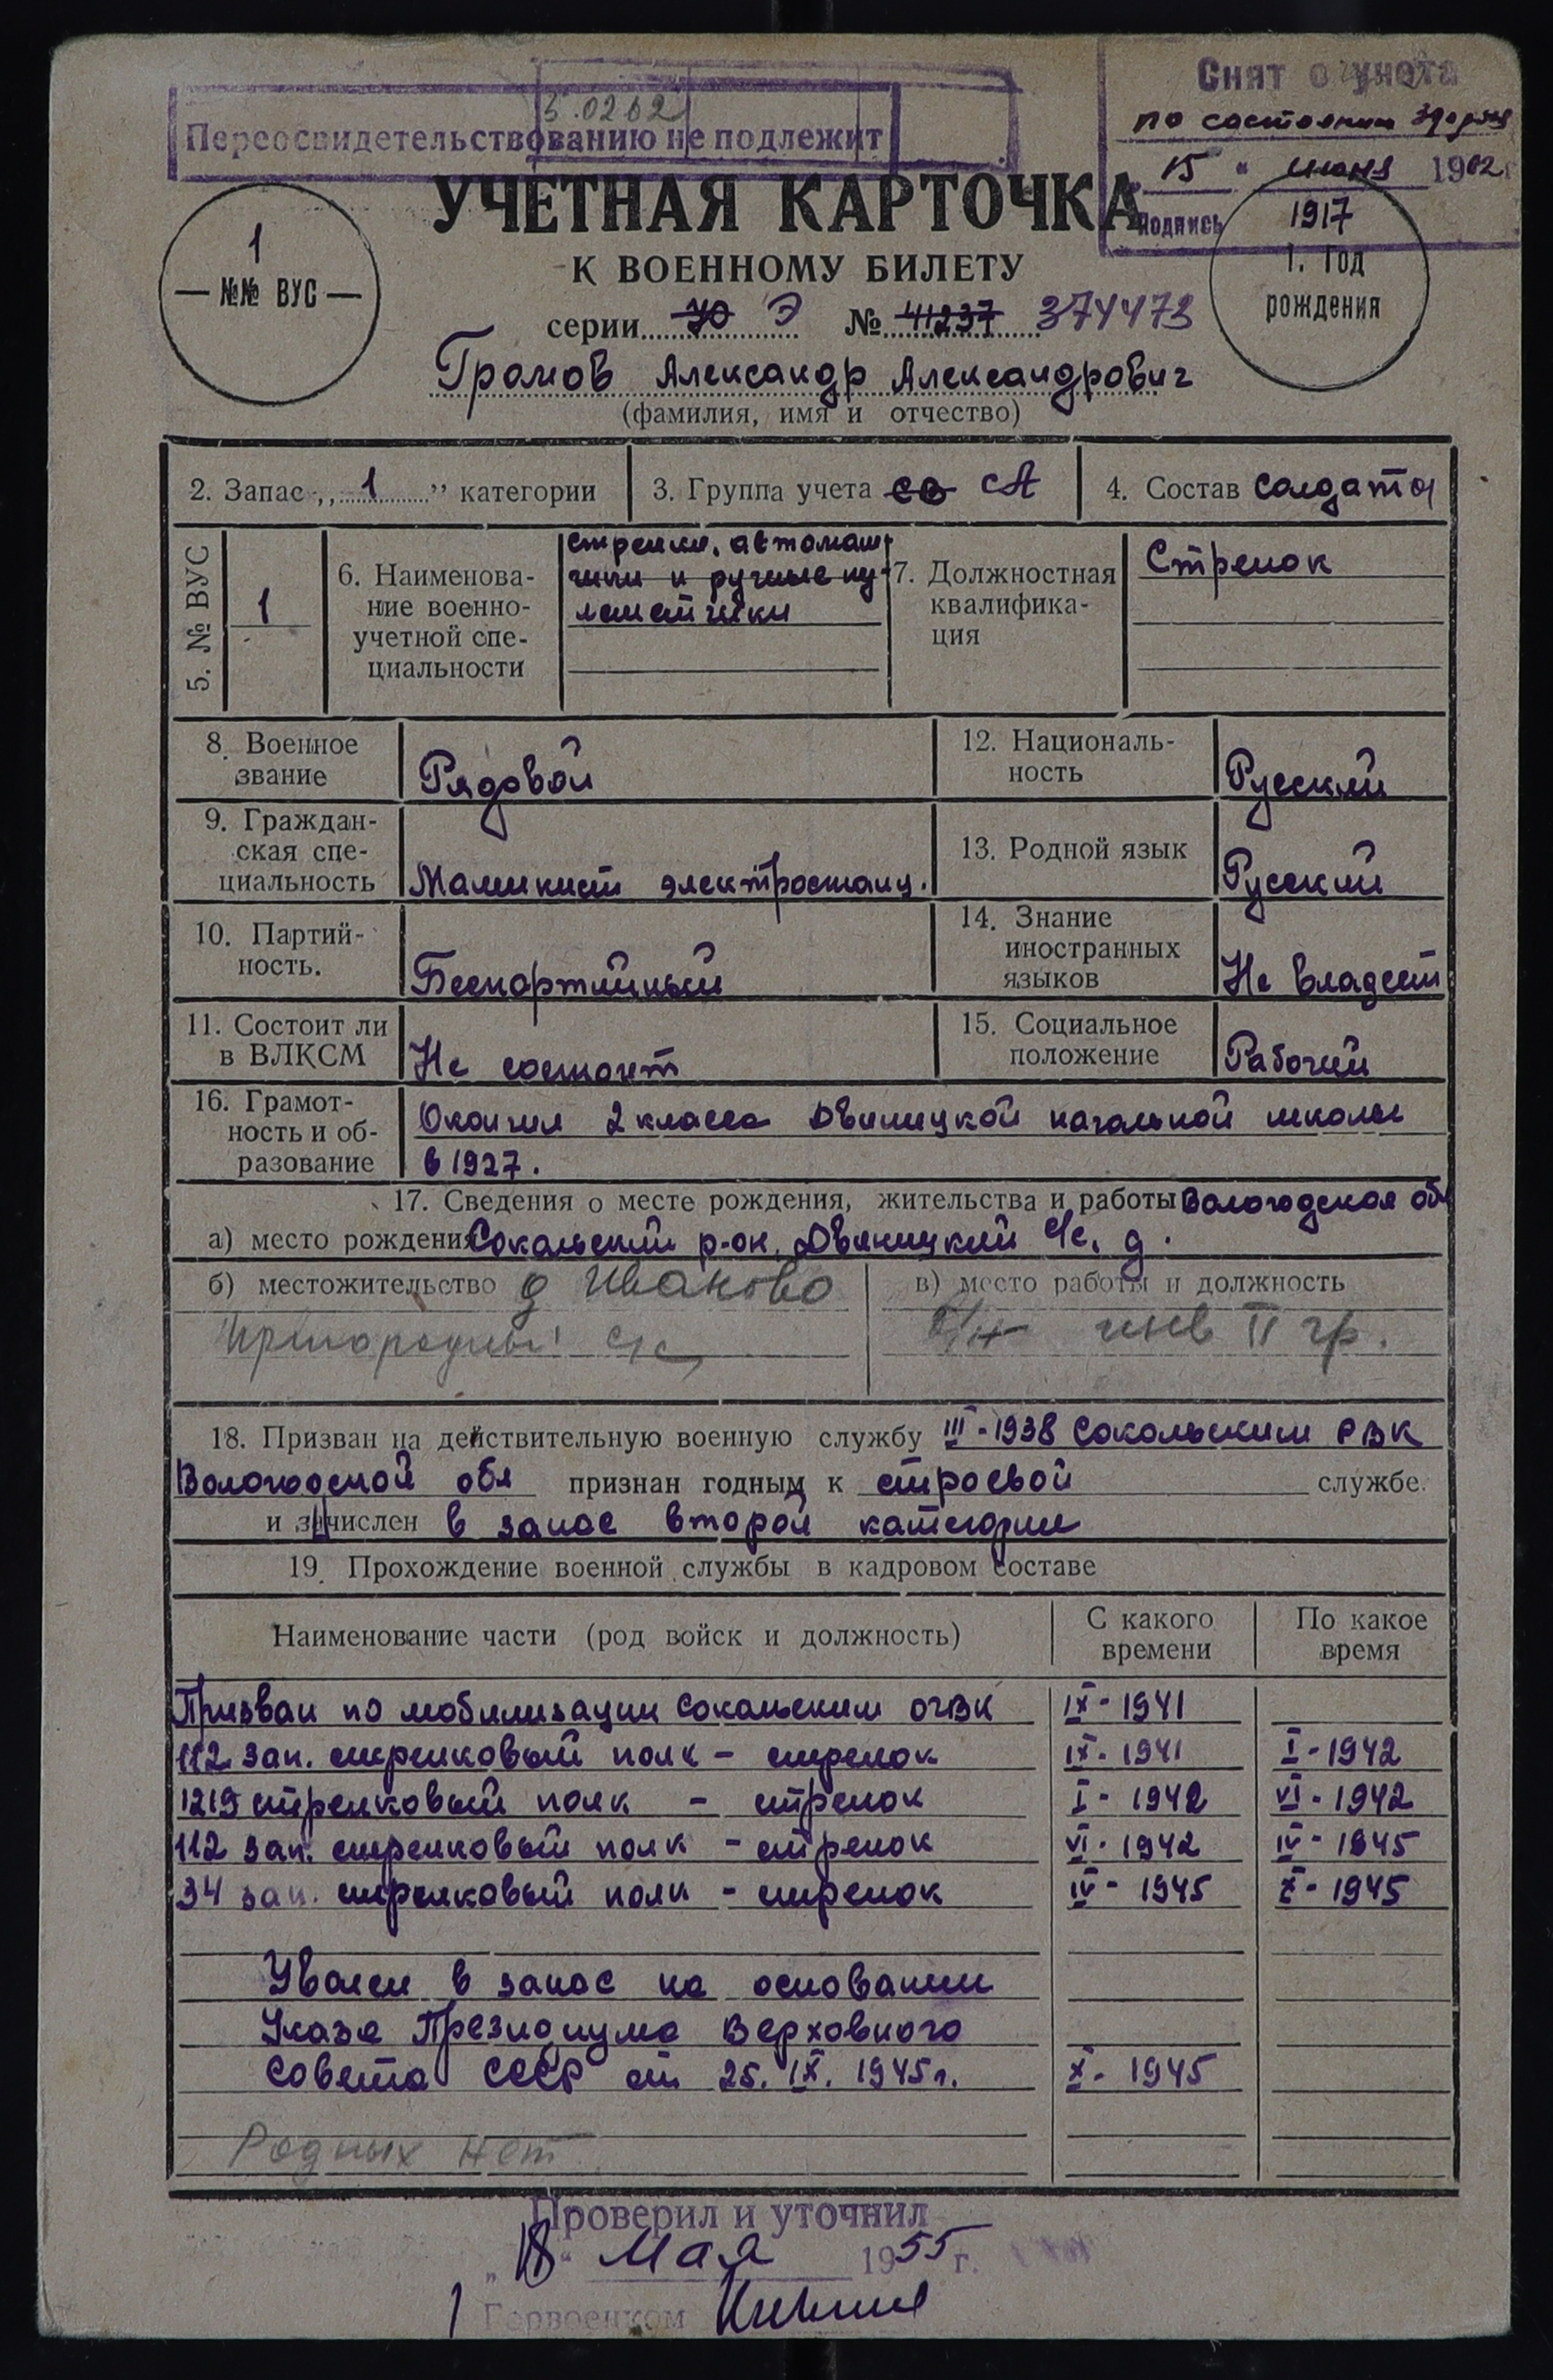 Снят с учета
по состоянию здоровья
5.0262
Переосвидетельствованию не подлежит
„15“ июня 1962 г.
Подпись
УЧЕТНАЯ КАРТОЧКА
К ВОЕННОМУ БИЛЕТУ
1
— №№ ВУС —
1917
1. Год
рождения
серии Ю Э № 41237 374473
Громов Александр Александрович
(фамилия, имя и отчество)
2. Запас „1” категории
3. Группа учета СВ СА
4. Состав солдаты
5. № ВУС
1
6. Наименова-
ние военно-
учетной спе-
циальности
стрелки, автомат-
чики и ручные пу-
леметчики
7. Должностная
квалифика-
ция
Стрелок
8. Военное
звание
Рядовой
12. Националь-
ность
Русский
9. Граждан-
ская спе-
циальность
Машинист электростанц.
13. Родной язык
Русский
10. Партий-
ность.
Беспартийный
14. Знание
иностранных
языков
Не владеет
11. Состоит ли
в ВЛКСМ
Не состоит
15. Социальное
положение
Рабочий
16. Грамот-
ность и об-
разование
Окончил 2 класса Двиницкой начальной школы
в 1927.
17. Сведения о месте рождения, жительства и работы Вологодская обл
а) место рождения Сокольский р-он, Двиницкий с/с, д.
б) местожительство д Иваново
Пригородный с/с
в) место работы и должность
инв II гр.
18. Призван на действительную военную службу III-1938 Сокольским РВК
Вологодской обл признан годным к строевой службе.
и зачислен в запас второй категории
19. Прохождение военной службы в кадровом составе
Наименование части (род войск и должность)
С какого
времени
По какое
время
Призван по мобилизации Сокольским ОГВК IX-1941
112 зап. стрелковый полк - стрелок IX-1941 I-1942
1219 стрелковый полк - стрелок I-1942 VI-1942
112 зап. стрелковый полк - стрелок VI-1942 IV-1945
34 зап. стрелковый полк - стрелок IV-1945 X-1945
Уволен в запас на основании
Указа Президиума Верховного
Совета СССР от 25.IX.1945г. X-1945
Родных нет
Проверил и уточнил
„18“ Мая 1955 г.
Горвоенком